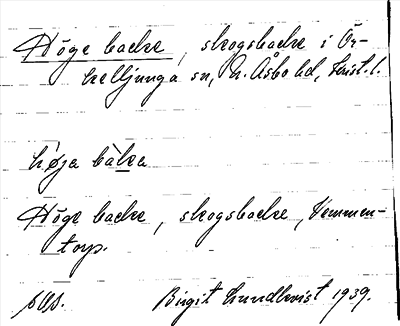 Höge backe, skogsbacke i Ör-
kelljunga sn, N. Åsbo hd, Krist. l.
høja bàka
Höge backe, skogsbacke, Vemmen-
torp.
Birgit Lundkvist 1939.